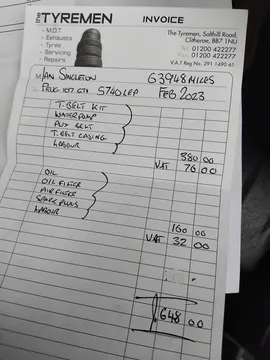 the TYREMEN INVOICE
- M.O.T
- Exhausts
- Tyres
- Servicing
- Repairs
The Tyremen, Salthill Road,
Clitheroe, BB7 1NU
Tel 01200 422277
Fax 01200 422277
V.A.T Reg No. 291 1490 61
IAN SINGLETON 63948 MILES
107 S740LEP FEB 2023
T.BELT KIT
WATERPUMP
AUX BELT
T.BELT CASING
LABOUR
380 00
VAT 76 00
OIL
OIL FILTER
AIR FILTER
SPARK PLUGS
LABOUR
160 00
VAT 32 00
648 00